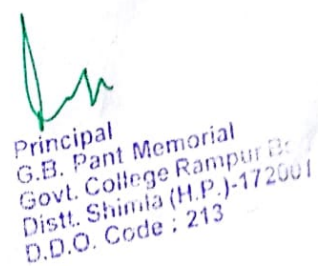 Principal
G.B. Pant Memorial
Govt. College Rampur
Distt. Shimla (H.P.)-172001
D.D.O. Code : 213